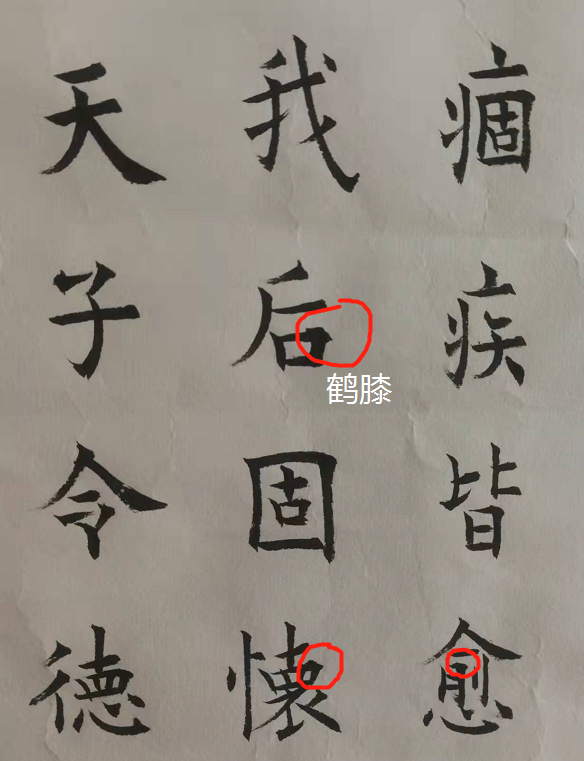 痼疾皆愈
我后固懷
天子令德
鹤膝